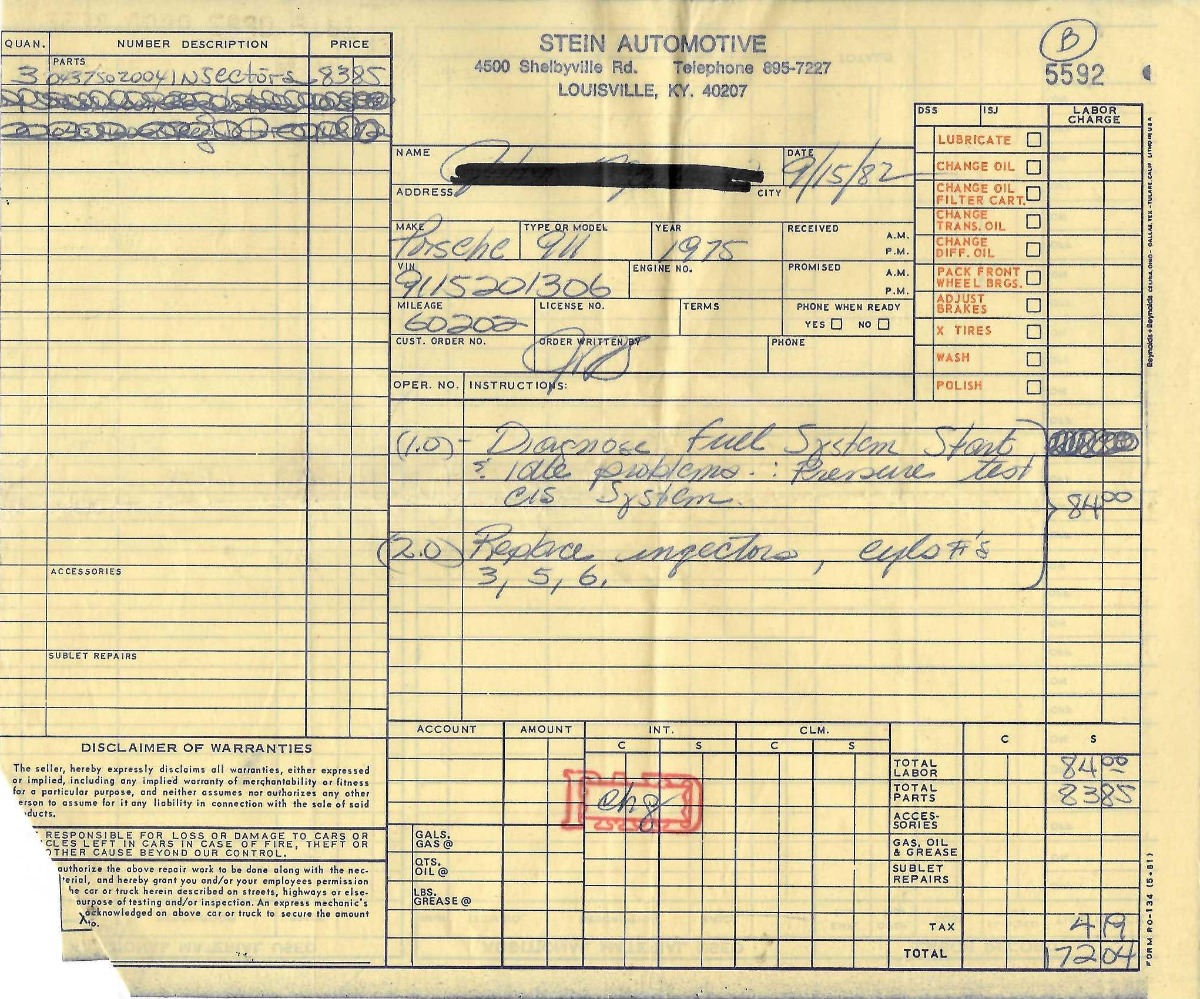 QUAN. NUMBER DESCRIPTION PRICE
PARTS
3 0437502004 Insectors 8385
STEIN AUTOMOTIVE
4500 Shelbyville Rd. Telephone 895-7227
LOUISVILLE, KY. 40207
B
5592
DSS ISJ LABOR CHARGE
LUBRICATE
CHANGE OIL
CHANGE OIL
FILTER CART.
CHANGE
TRANS. OIL
CHANGE
DIFF. OIL
PACK FRONT
WHEEL BRGS.
ADJUST
BRAKES
X TIRES
WASH
POLISH
NAME DATE 9/15/82
ADDRESS CITY
MAKE TYPE OR MODEL YEAR RECEIVED A.M.
Porsche 911 1975 P.M.
VIN ENGINE NO. PROMISED A.M.
9115201306 P.M.
MILEAGE LICENSE NO. TERMS PHONE WHEN READY
60202 YES NO
CUST. ORDER NO. ORDER WRITTEN BY PHONE
OPER. NO. INSTRUCTIONS:
(1.0) - Diagnose Fuel System Start
& Idle problems. : Pressure test
CIS System. 84 00
(2.0) Replace injectors, cyls #'s
3, 5, 6.
ACCESSORIES
SUBLET REPAIRS
DISCLAIMER OF WARRANTIES
The seller, hereby expressly disclaims all warranties, either expressed
or implied, including any implied warranty of merchantability or fitness
for a particular purpose, and neither assumes nor authorizes any other
erson to assume for it any liability in connection with the sale of said
ducts.
RESPONSIBLE FOR LOSS OR DAMAGE TO CARS OR
CLES LEFT IN CARS IN CASE OF FIRE, THEFT OR
OTHER CAUSE BEYOND OUR CONTROL.
authorize the above repair work to be done along with the nec-
terial, and hereby grant you and/or your employees permission
he car or truck herein described on streets, highways or else-
urpose of testing and/or inspection. An express mechanic's
acknowledged on above car or truck to secure the amount
X
ACCOUNT AMOUNT INT. CLM.
C S C S C S
PAID
chg
GALS.
GAS @
QTS.
OIL @
LBS.
GREASE @
TOTAL
LABOR 84 00
TOTAL
PARTS 83 85
ACCES-
SORIES
GAS, OIL
& GREASE
SUBLET
REPAIRS
TAX 4 19
TOTAL 172 04
FORM RO-134 (5-81)